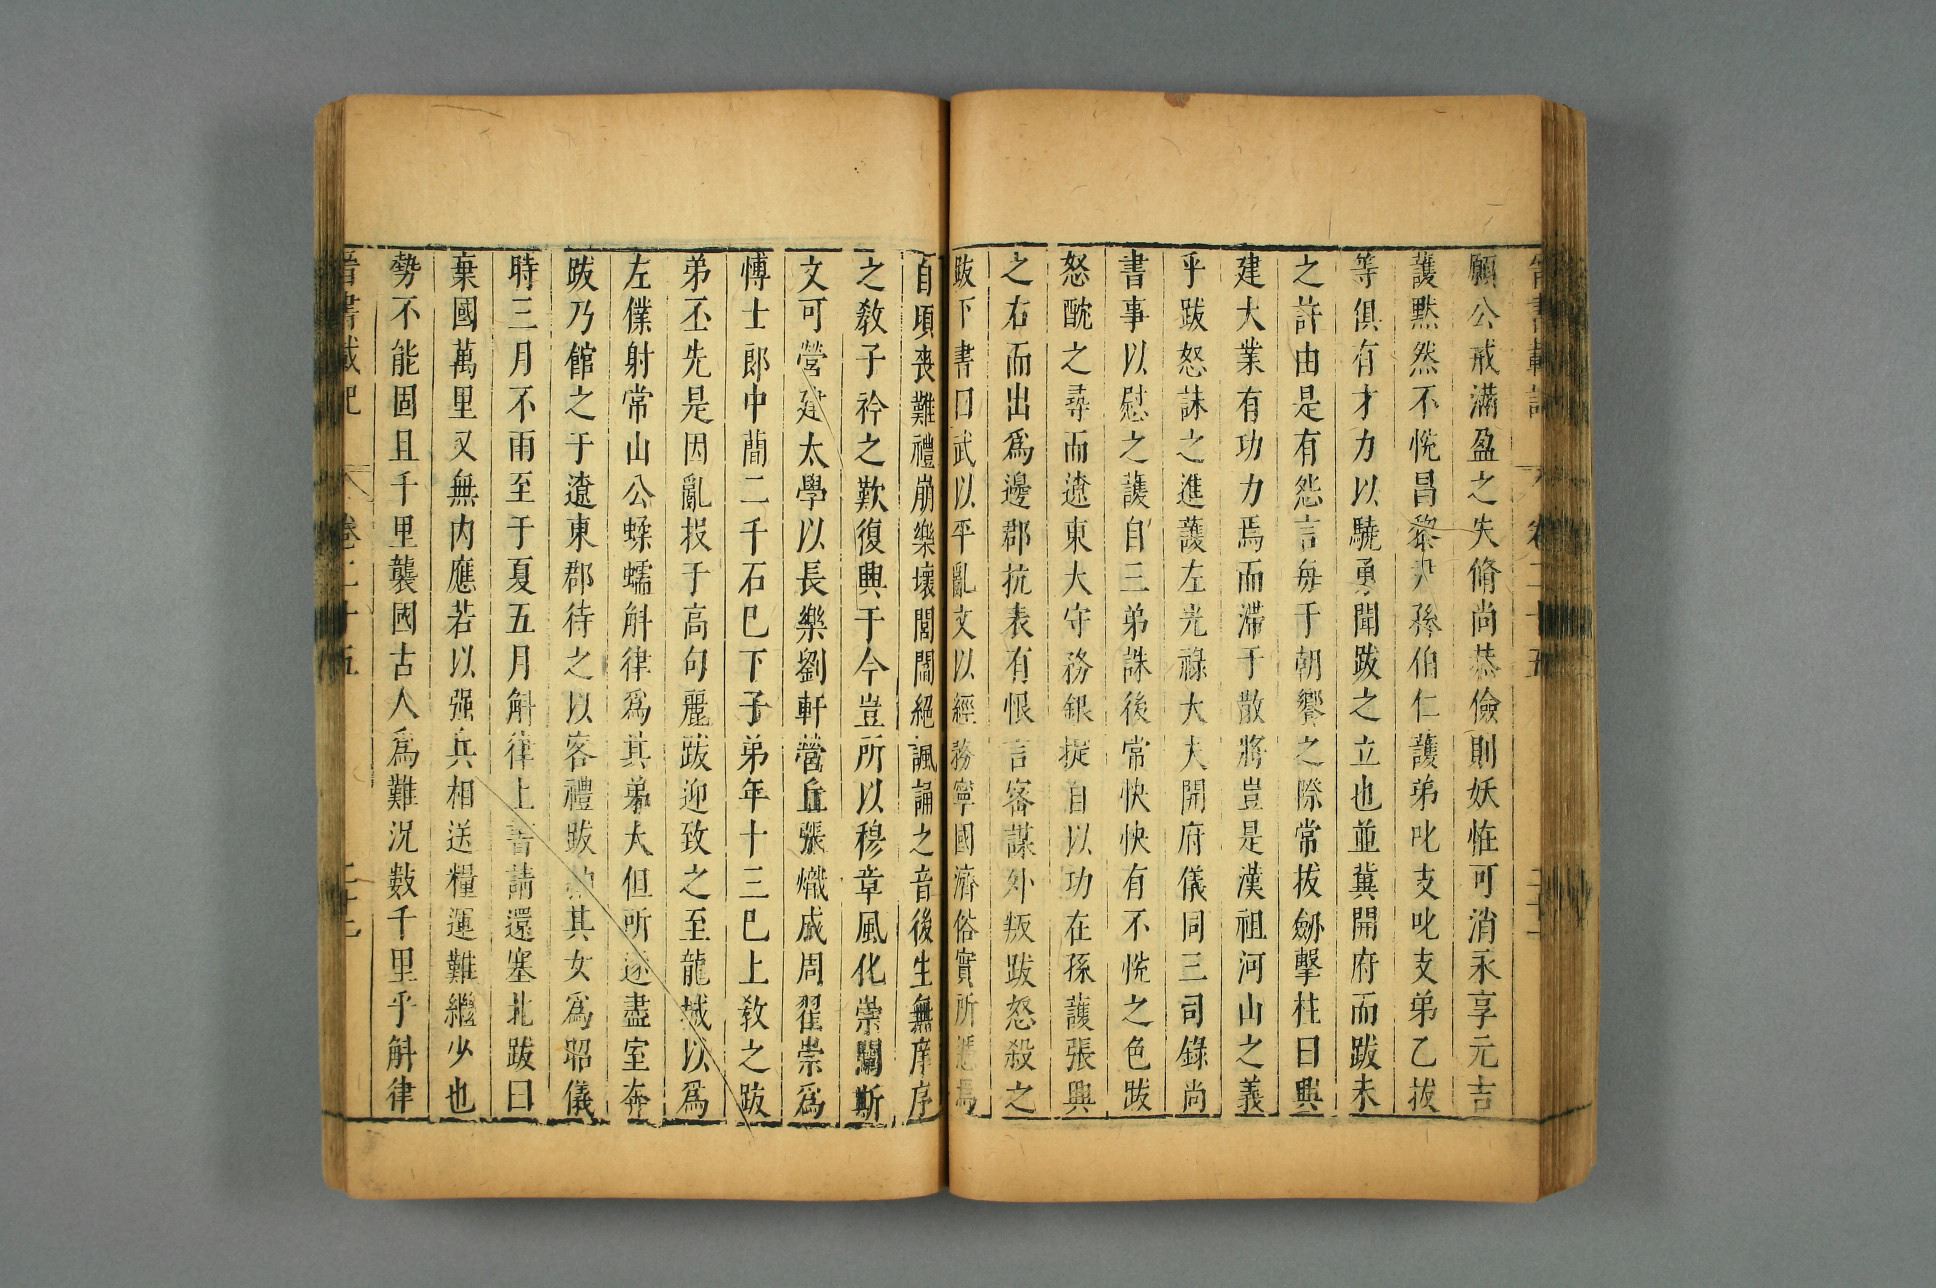 晉書載記 卷二十五
願公戒滿盈之失脩尚恭儉則妖恠可消永享元吉
護黙然不悅昌黎尹孫伯仁護弟叱支叱支弟乙拔
等俱有才力以驍勇聞跋之立也並冀開府而跋未
之許由是有怨言每于朝饗之際常拔劒擊柱曰興
建大業有功力焉而滯于散將豈是漢祖河山之義
乎跋怒誅之進護左光祿大夫開府儀同三司錄尚
書事以慰之護自三弟誅後常怏怏有不悅之色跋
怒酖之尋而遼東太守務銀提自以功在孫護張興
之右而出爲邊郡抗表有恨言密謀外叛跋怒殺之
跋下書曰武以平亂文以經務寧國濟俗實所憑焉
自頃喪難禮崩樂壞閭閻絕諷誦之音後生無庠序
之敎子衿之歎復興于今豈所以穆章風化崇闡斯
文可營建太學以長樂劉軒營丘張熾成周翟崇爲
博士郎中簡二千石巳下子弟年十三巳上敎之跋
弟丕先是因亂投于高句麗跋迎致之至龍城以爲
左僕射常山公蝚蠕斛律爲其弟大但所逐盡室奔
跋乃館之于遼東郡待之以客禮跋納其女爲昭儀
時三月不雨至于夏五月斛律上書請還塞北跋曰
棄國萬里又無內應若以强兵相送糧運難繼少也
勢不能固且千里襲國古人爲難況數千里乎斛律
晉書載記 卷二十五